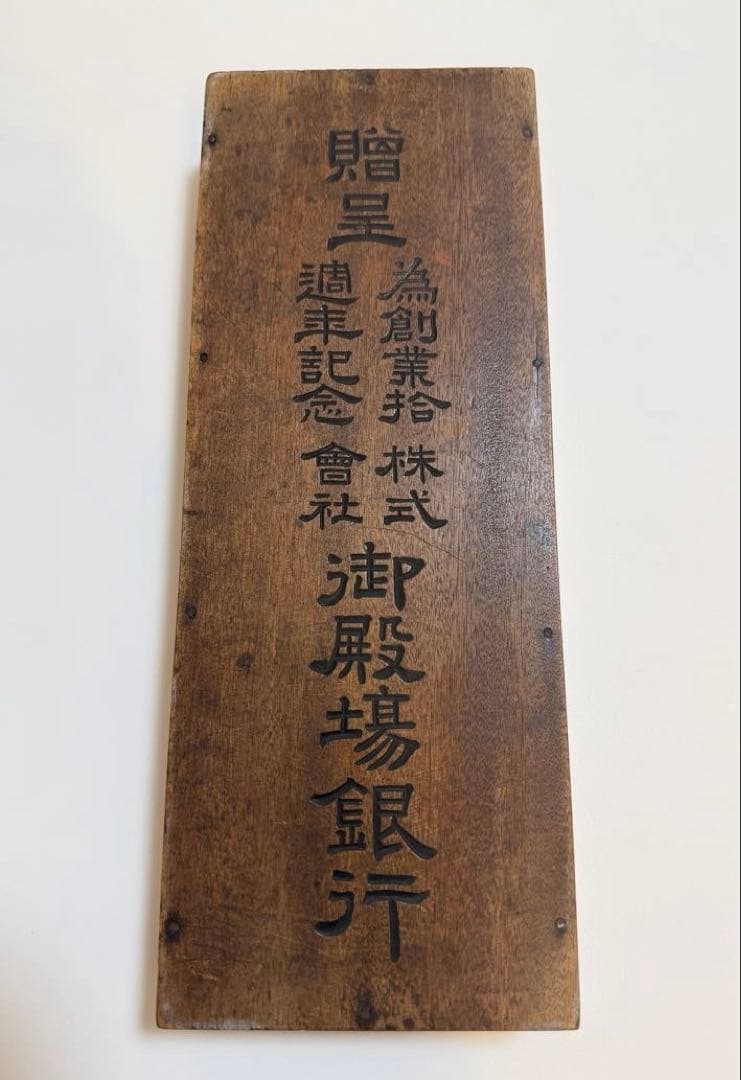 贈呈
為創業拾
週年記念
株式
會社
御殿場銀行